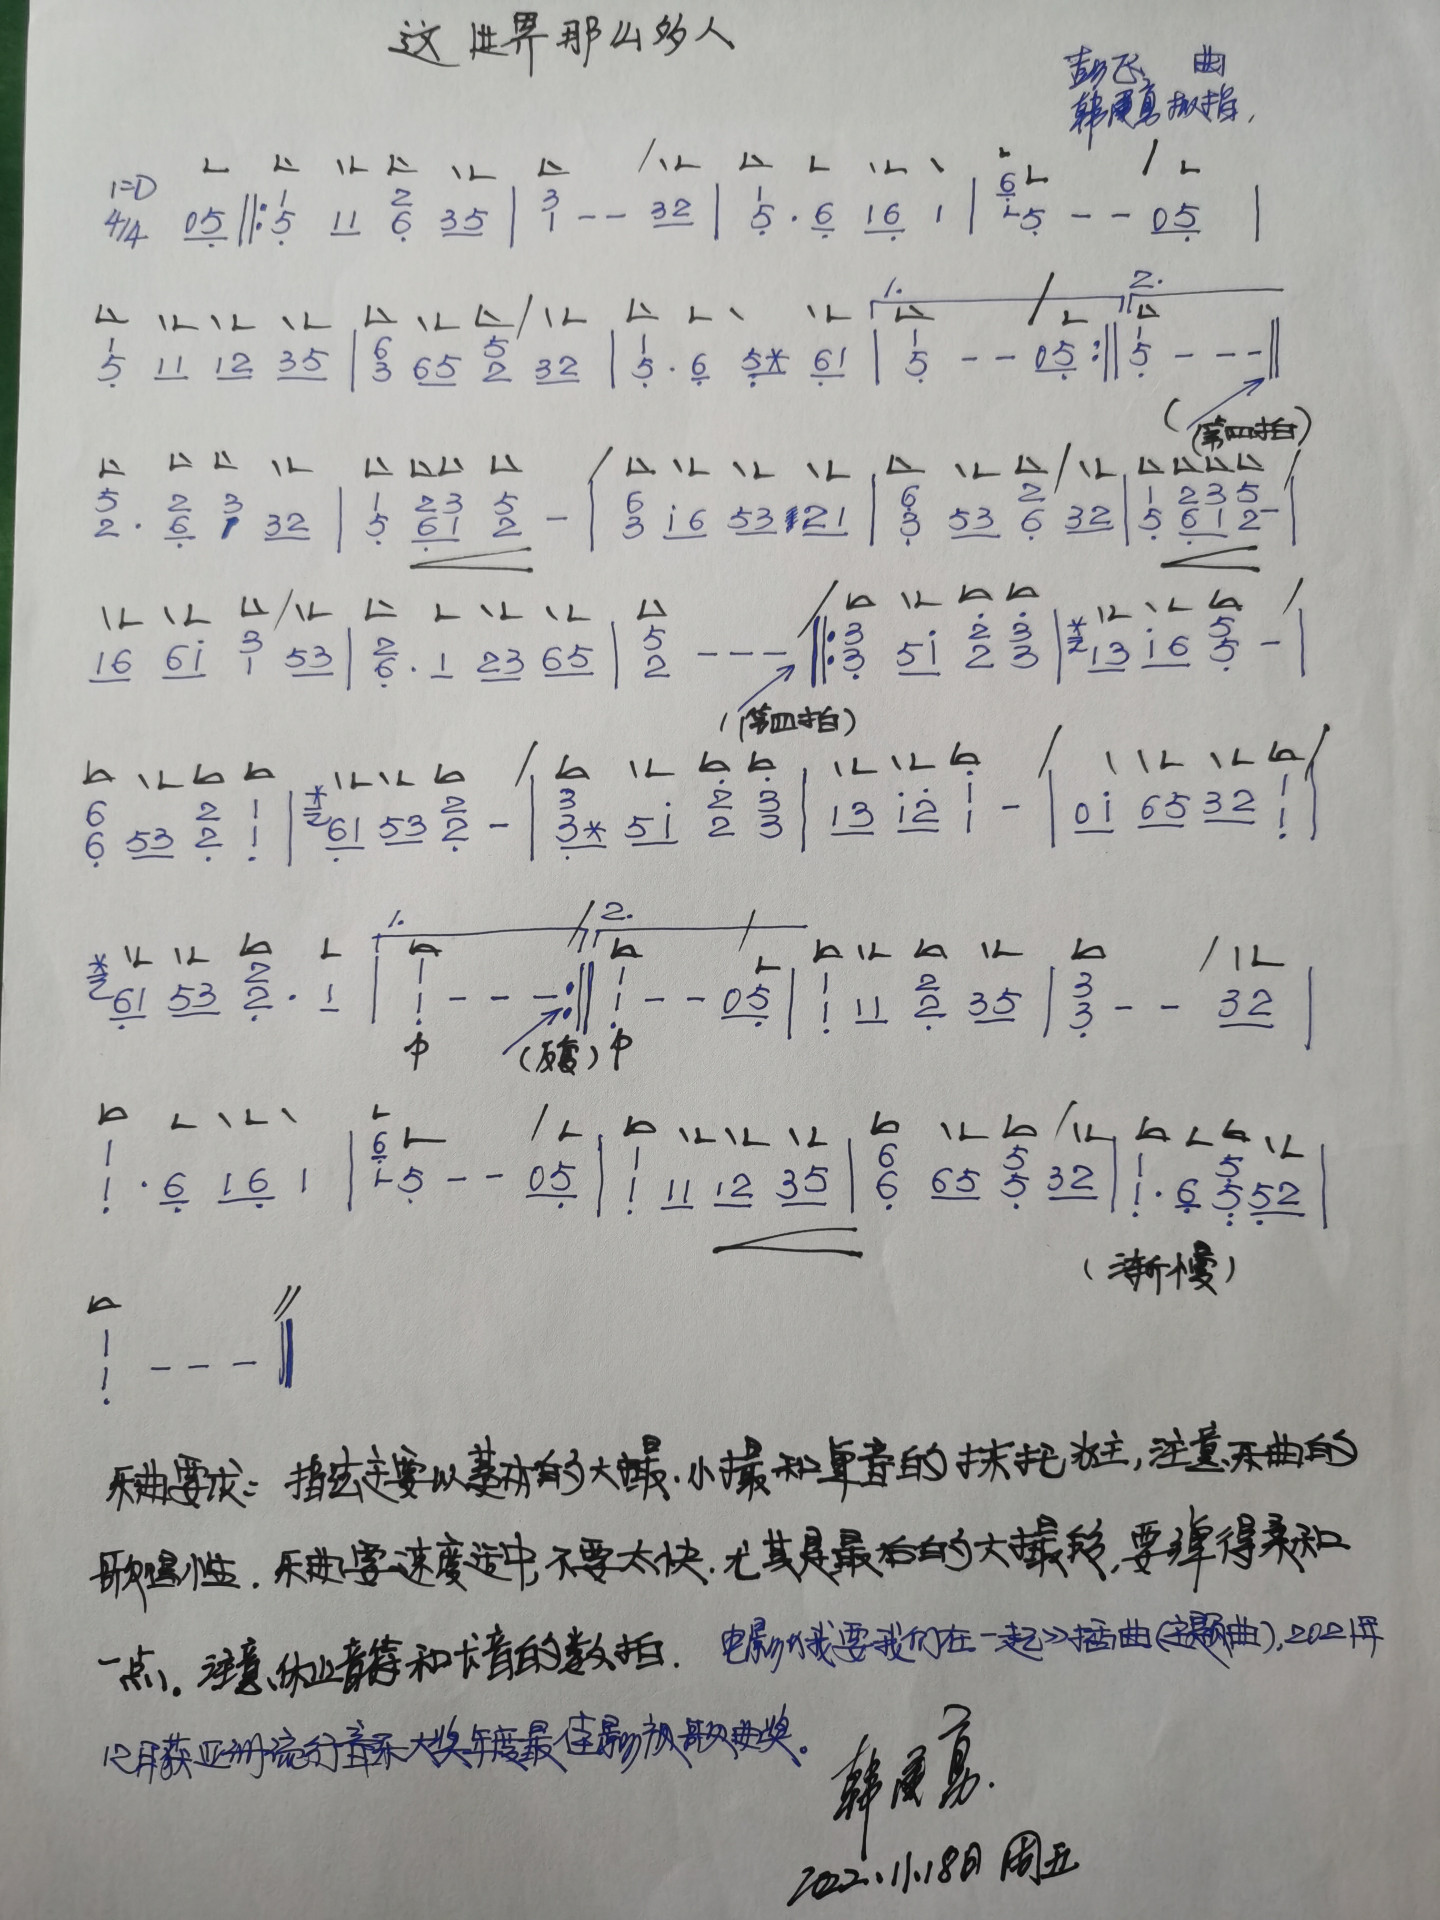 这世界那么多人
彭飞 曲
韩 勇 拟指.
1=D
4/4 05 ‖: 5 11 6 35 | 1 -- 32 | 5 · 6 16 1 | 5 -- 05 |
1. 2.
5 11 12 35 | 3 65 2 32 | 5 · 6 5* 61 | 5 -- 05 :‖ 5 --- ‖
(第四拍)
2 · 6 1 32 | 5 61 2 - | 3 i6 53 21 | 3 53 6 32 | 5 61 2 - |
16 6i 1 53 | 6 · 1 23 65 | 2 --- ‖: 3 5i 2 3 | 13 i6 5 - |
(第四拍)
6 53 2 1 | 61 53 2 - | 3* 5i 2 3 | 13 i2 1 - | 0i 65 32 1 |
1. 2.
61 53 2 · 1 | 1 --- :‖ 1 -- 05 | 1 11 2 35 | 3 -- 32 |
中 (反复) 中
1 · 6 16 1 | 5 -- 05 | 1 11 12 35 | 6 65 5 32 | 1 · 6 5 52 |
(渐慢)
1 --- ‖
乐曲要求: 指法主要以基本的大撮.小撮和单音的抹托为主,注意乐曲的
歌唱性.乐曲要速度适中,不要太快.尤其是最后的大撮段,要弹得柔和
一点。注意休止音符和长音的数拍. 电影《我要我们在一起》插曲(主题曲),2021年
12月获亚洲流行音乐大奖年度最佳影视歌曲奖。
韩 勇.
2022.11.18日 周五